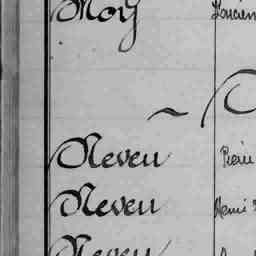 Moy Lucien
N
Neveu Pierre
Neveu Henri
Neveu